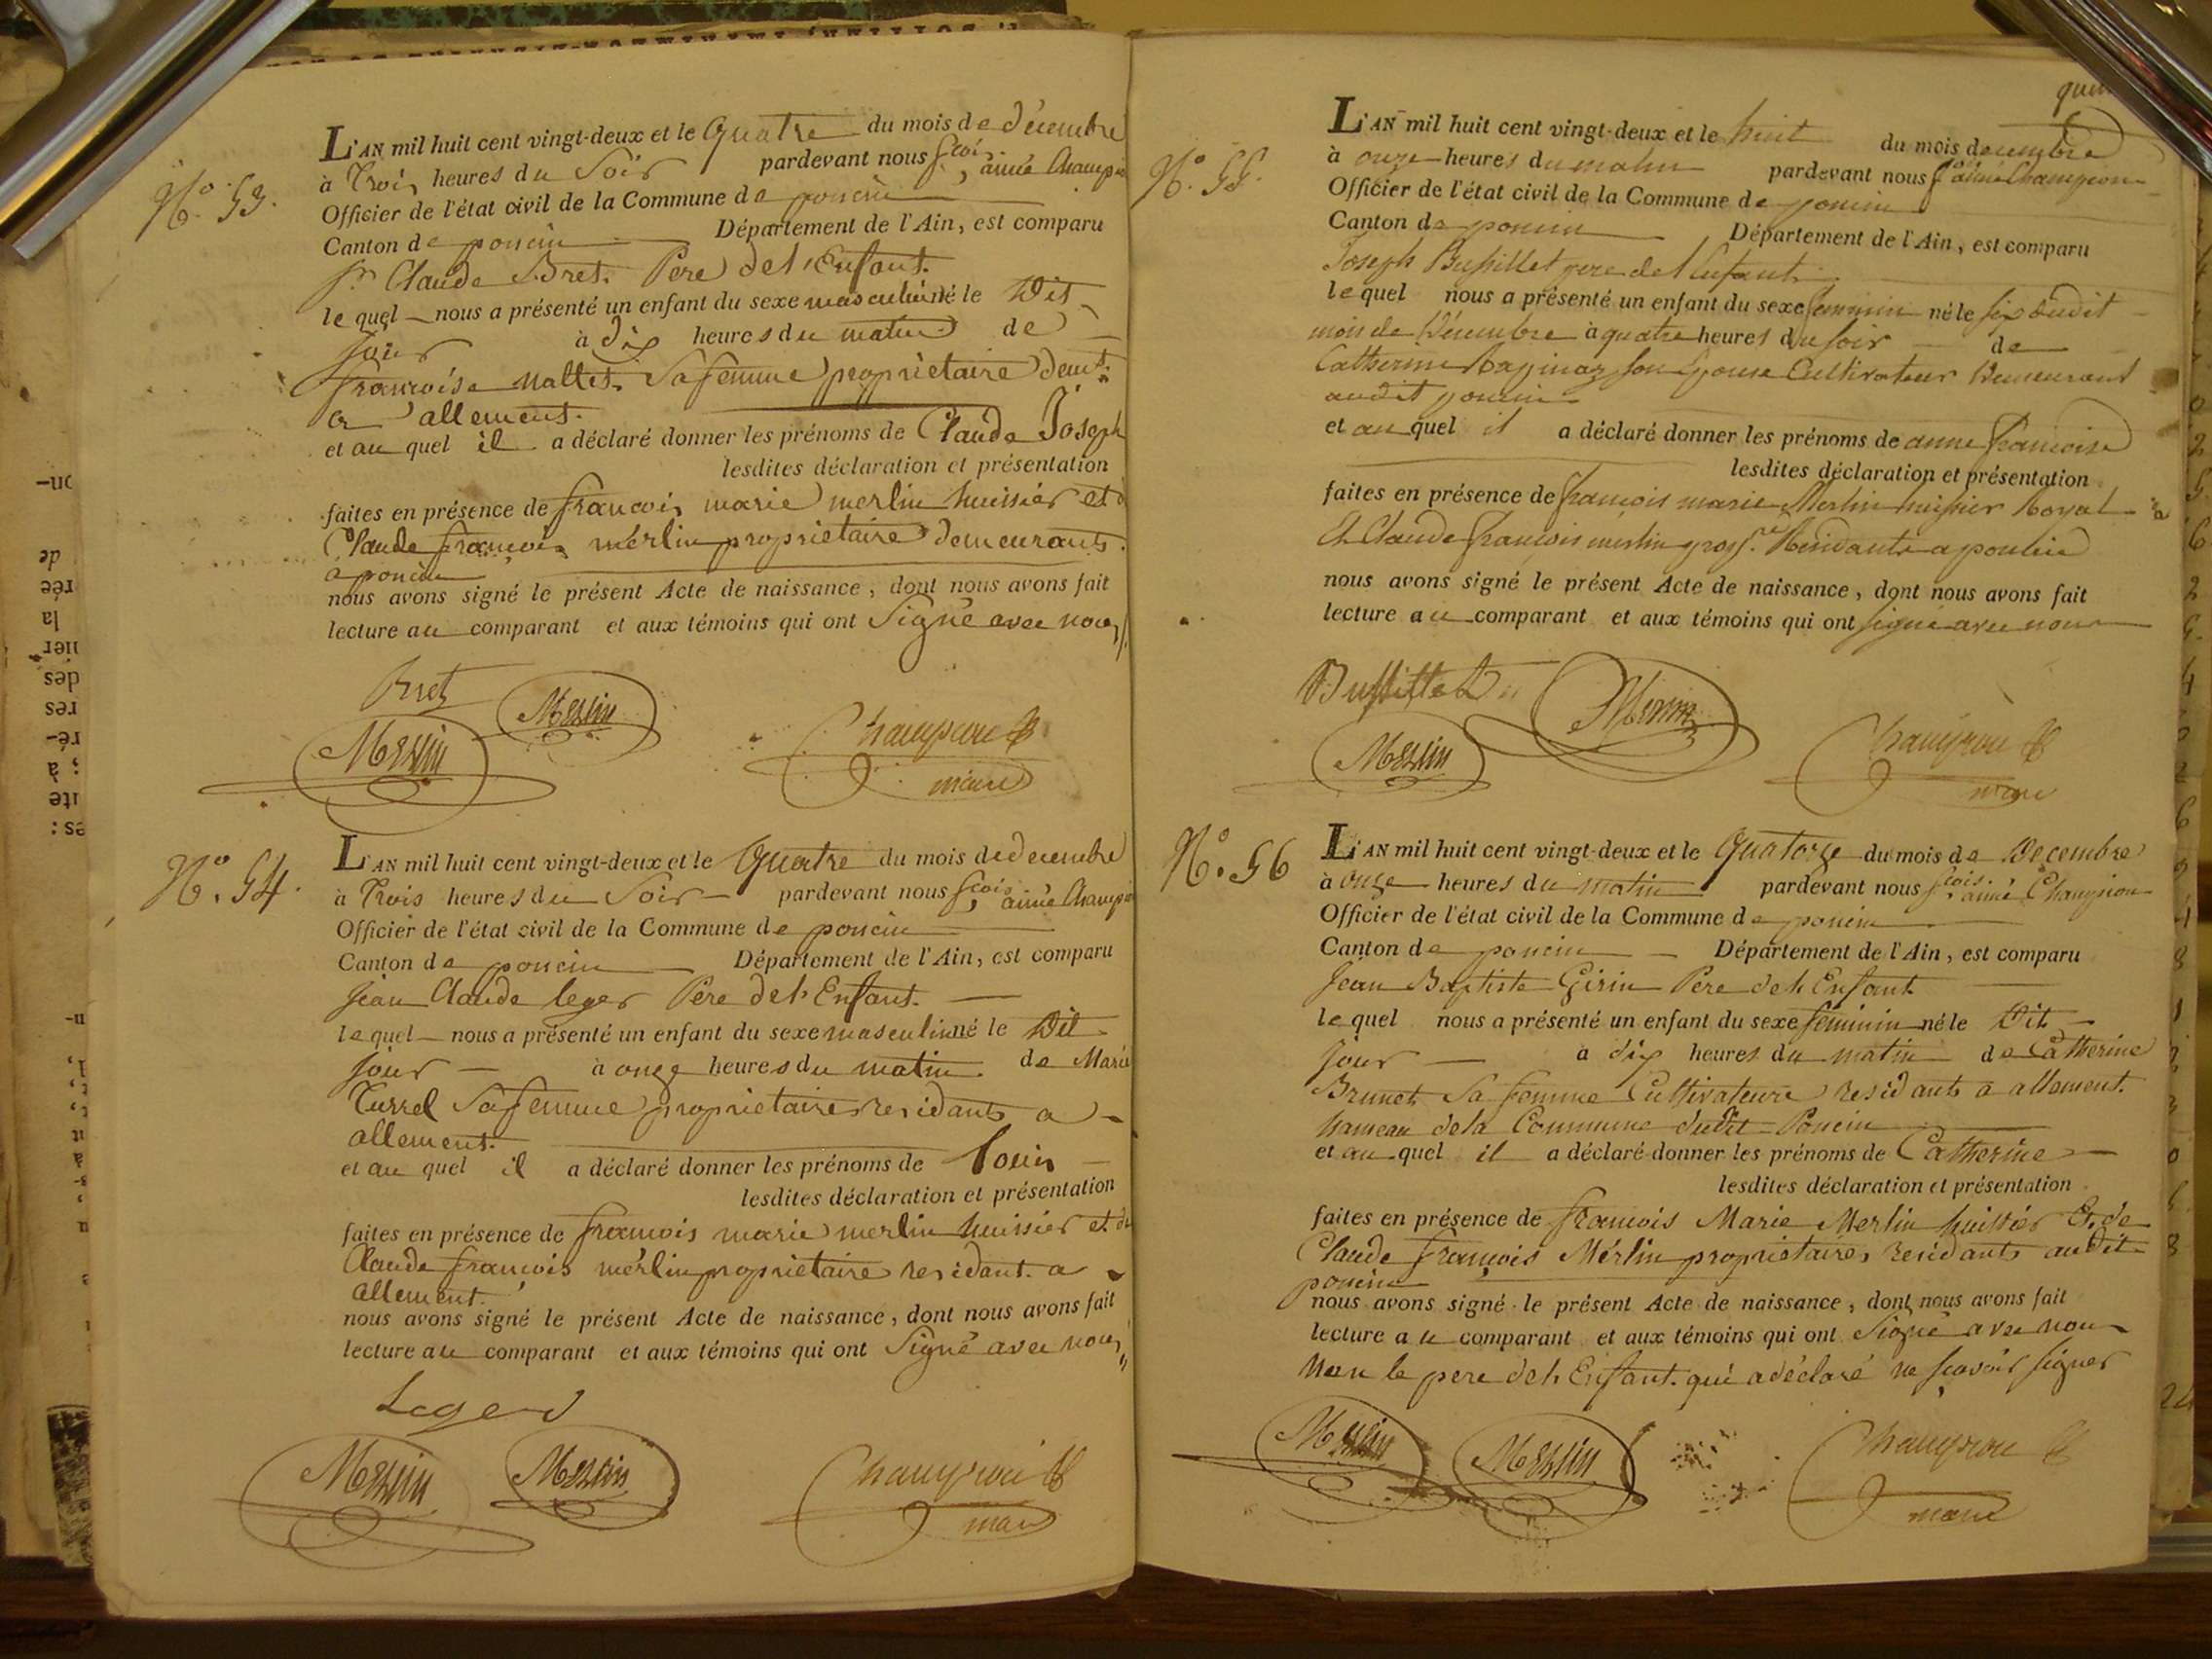 N.° 53.
L'AN mil huit cent vingt-deux et le quatre du mois de décembre
à trois heures du soir pardevant nous fcois aimé Champion
Officier de l'état civil de la Commune de poncin
Canton de poncin Département de l'Ain, est comparu
Sr Claude Bret. Pere de l'Enfant.
le quel nous a présenté un enfant du sexe masculin né le Dit
jour à dix heures du matin de
francoise mallet sa femme propriètaire demt.
a allement.
et au quel il a déclaré donner les prénoms de Claude Joseph
lesdites déclaration et présentation
faites en présence de francois marie merlin huissier et
Claude françois mérlin propriétaire demeurants
a poncin
nous avons signé le présent Acte de naissance, dont nous avons fait
lecture au comparant et aux témoins qui ont Signé avec nous
Bret
Merlin
Merlin
Champion
maire
N.° 54.
L'AN mil huit cent vingt-deux et le Quatre du mois de decembre
à trois heures du Soir pardevant nous fcois aimé Champion
Officier de l'état civil de la Commune de poncin
Canton de poncin Département de l'Ain, est comparu
Jean Claude leger Pere de l'Enfant.
le quel nous a présenté un enfant du sexe masculin né le Dit
jour à onze heures du matin. de Marie
Turrel Sa femme propriétaires residants a
allement.
et au quel il a déclaré donner les prénoms de Louis
lesdites déclaration et présentation
faites en présence de francois marie merlin huissier et de
Claude françois mérlin propriétaire residant a
allement.
nous avons signé le présent Acte de naissance, dont nous avons fait
lecture au comparant et aux témoins qui ont Signé avec nous
Leger
Merlin
Merlin
Champion
maire
N.° 55.
L'AN mil huit cent vingt-deux et le huit du mois decembre
à onze heures du matin pardevant nous f. aimé Champion
Officier de l'état civil de la Commune de poncin
Canton de poncin Département de l'Ain, est comparu
Joseph Bussillet pere de l'enfant
le quel nous a présenté un enfant du sexe feminin né le six dudit
mois de Décembre à quatre heures du soir de
Catherine son Epouse Cultivateur Demeurant
audit poncin
et au quel il a déclaré donner les prénoms de anne francoise
lesdites déclaration et présentation
faites en présence de francois marie Merlin huissier Royal
Et Claude francois merlin Residants a poncin
nous avons signé le présent Acte de naissance, dont nous avons fait
lecture au comparant et aux témoins qui ont signé avec nous
Bussillet
Merlin
Merlin
Champion
maire
N.° 56
L'AN mil huit cent vingt-deux et le Quatorze du mois de Decembre
à onze heures du matin pardevant nous fcois. aimé Champion
Officier de l'état civil de la Commune de poncin
Canton de poncin Département de l'Ain, est comparu
Jean Baptiste Girin Pere de l'Enfant
le quel nous a présenté un enfant du sexe féminin né le Dit
jour à dix heures du matin de Catherine
Brunet Sa femme Cultivateurs residants a allement.
hameau de la Commune dudit Poncin
et au quel il a déclaré donner les prénoms de Catherine
lesdites déclaration et présentation
faites en présence de francois Marie Merlin huissier Et de
Claude françois Mérlin propriétaires residants audit
poncin
nous avons signé le présent Acte de naissance, dont nous avons fait
lecture au comparant et aux témoins qui ont Signé avec nous
Non le pere de l'Enfant. qui a déclaré ne sçavoir signer
Merlin
Merlin
Champion
maire